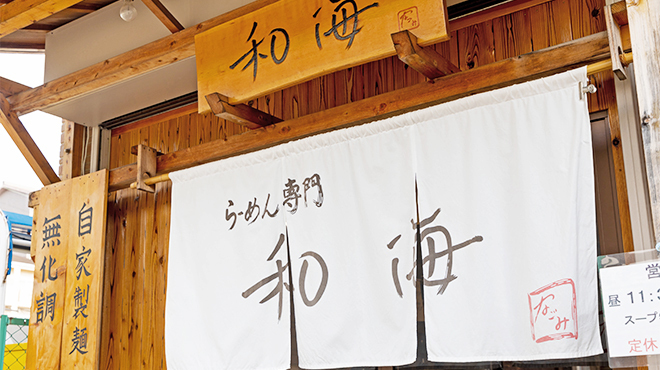 和海
なごみ
らーめん専門
和海
なごみ
自家製麺
無化調
営
昼 11:
スープ
定休